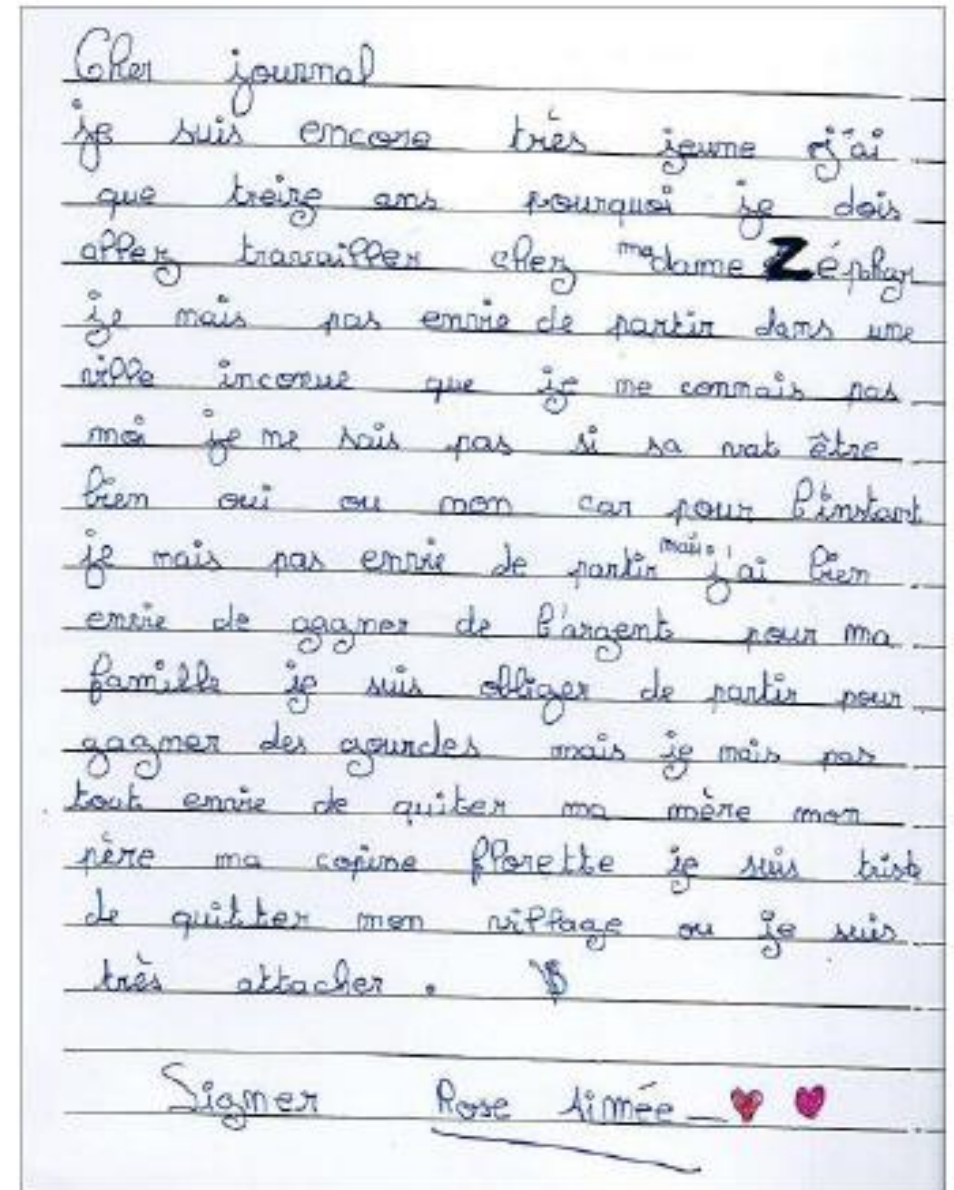 Cher journal
je suis encore très jeune j'ai
que treize ans pourquoi je dois
aller travailler chez madame Zéphyr
je nais pas envie de partir dans une
ville inconue que je ne connais pas
moi je ne sais pas si sa vat être
bien oui ou non car pour l'instant
je nais pas envie de partir mais j'ai bien
envie de gagner de l'argent pour ma
famille je suis obliger de partir pour
gagner des gourdes mais je nais pas
tout envie de quiter ma mère mon
père ma copine florette je suis triste
de quitter mon village ou je suis
très attacher.
Signer Rose Aimée